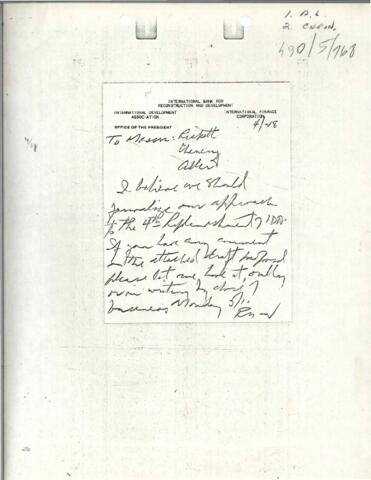 1. R.C.
2. Chron.
490/5/768
INTERNATIONAL BANK FOR
RECONSTRUCTION AND DEVELOPMENT
INTERNATIONAL DEVELOPMENT
ASSOCIATION
INTERNATIONAL FINANCE
CORPORATION
OFFICE OF THE PRESIDENT
4/28
To Messrs. Rickett
Chenery
Adler
I believe we should
formalize our approach
to the 4th Replenishment of IDA.
If you have any comment
on the attached draft proposal
please let me have it, orally
or in writing by close of
business Monday 5/1.